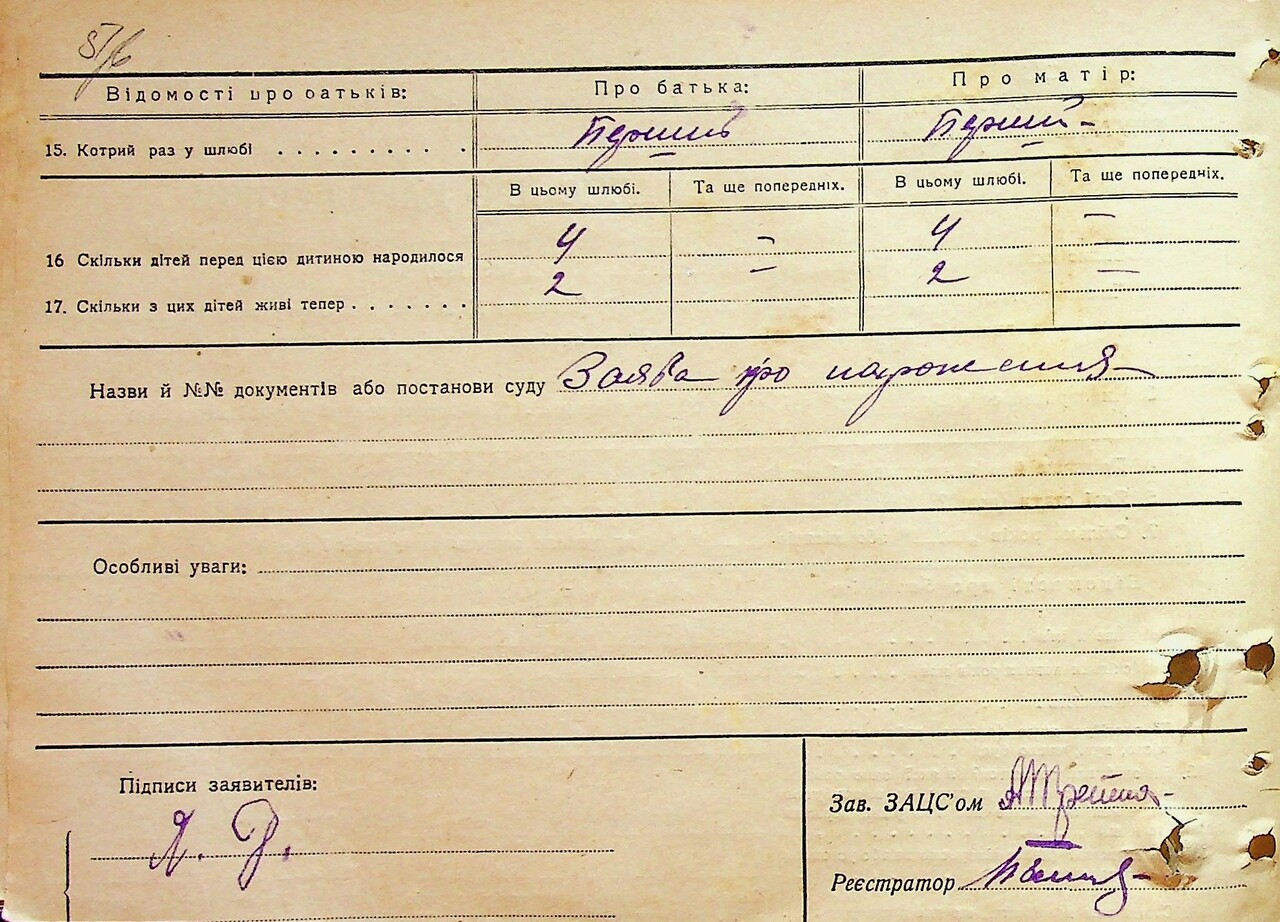 57/6
Відомості про батьків:
Про батька:
Про матір:
15. Котрий раз у шлюбі . . . . . . . . . .
Перший
Перший
В цьому шлюбі.
Та ще попередніх.
В цьому шлюбі.
Та ще попередніх.
16 Скільки дітей перед цією дитиною народилося
4
–
4
–
17. Скільки з цих дітей живі тепер . . . . . . .
2
–
2
–
Назви й №№ документів або постанови суду Заява про нарождения
Особливі уваги:
Підписи заявителів:
Зав. ЗАЦС'ом
Реєстратор